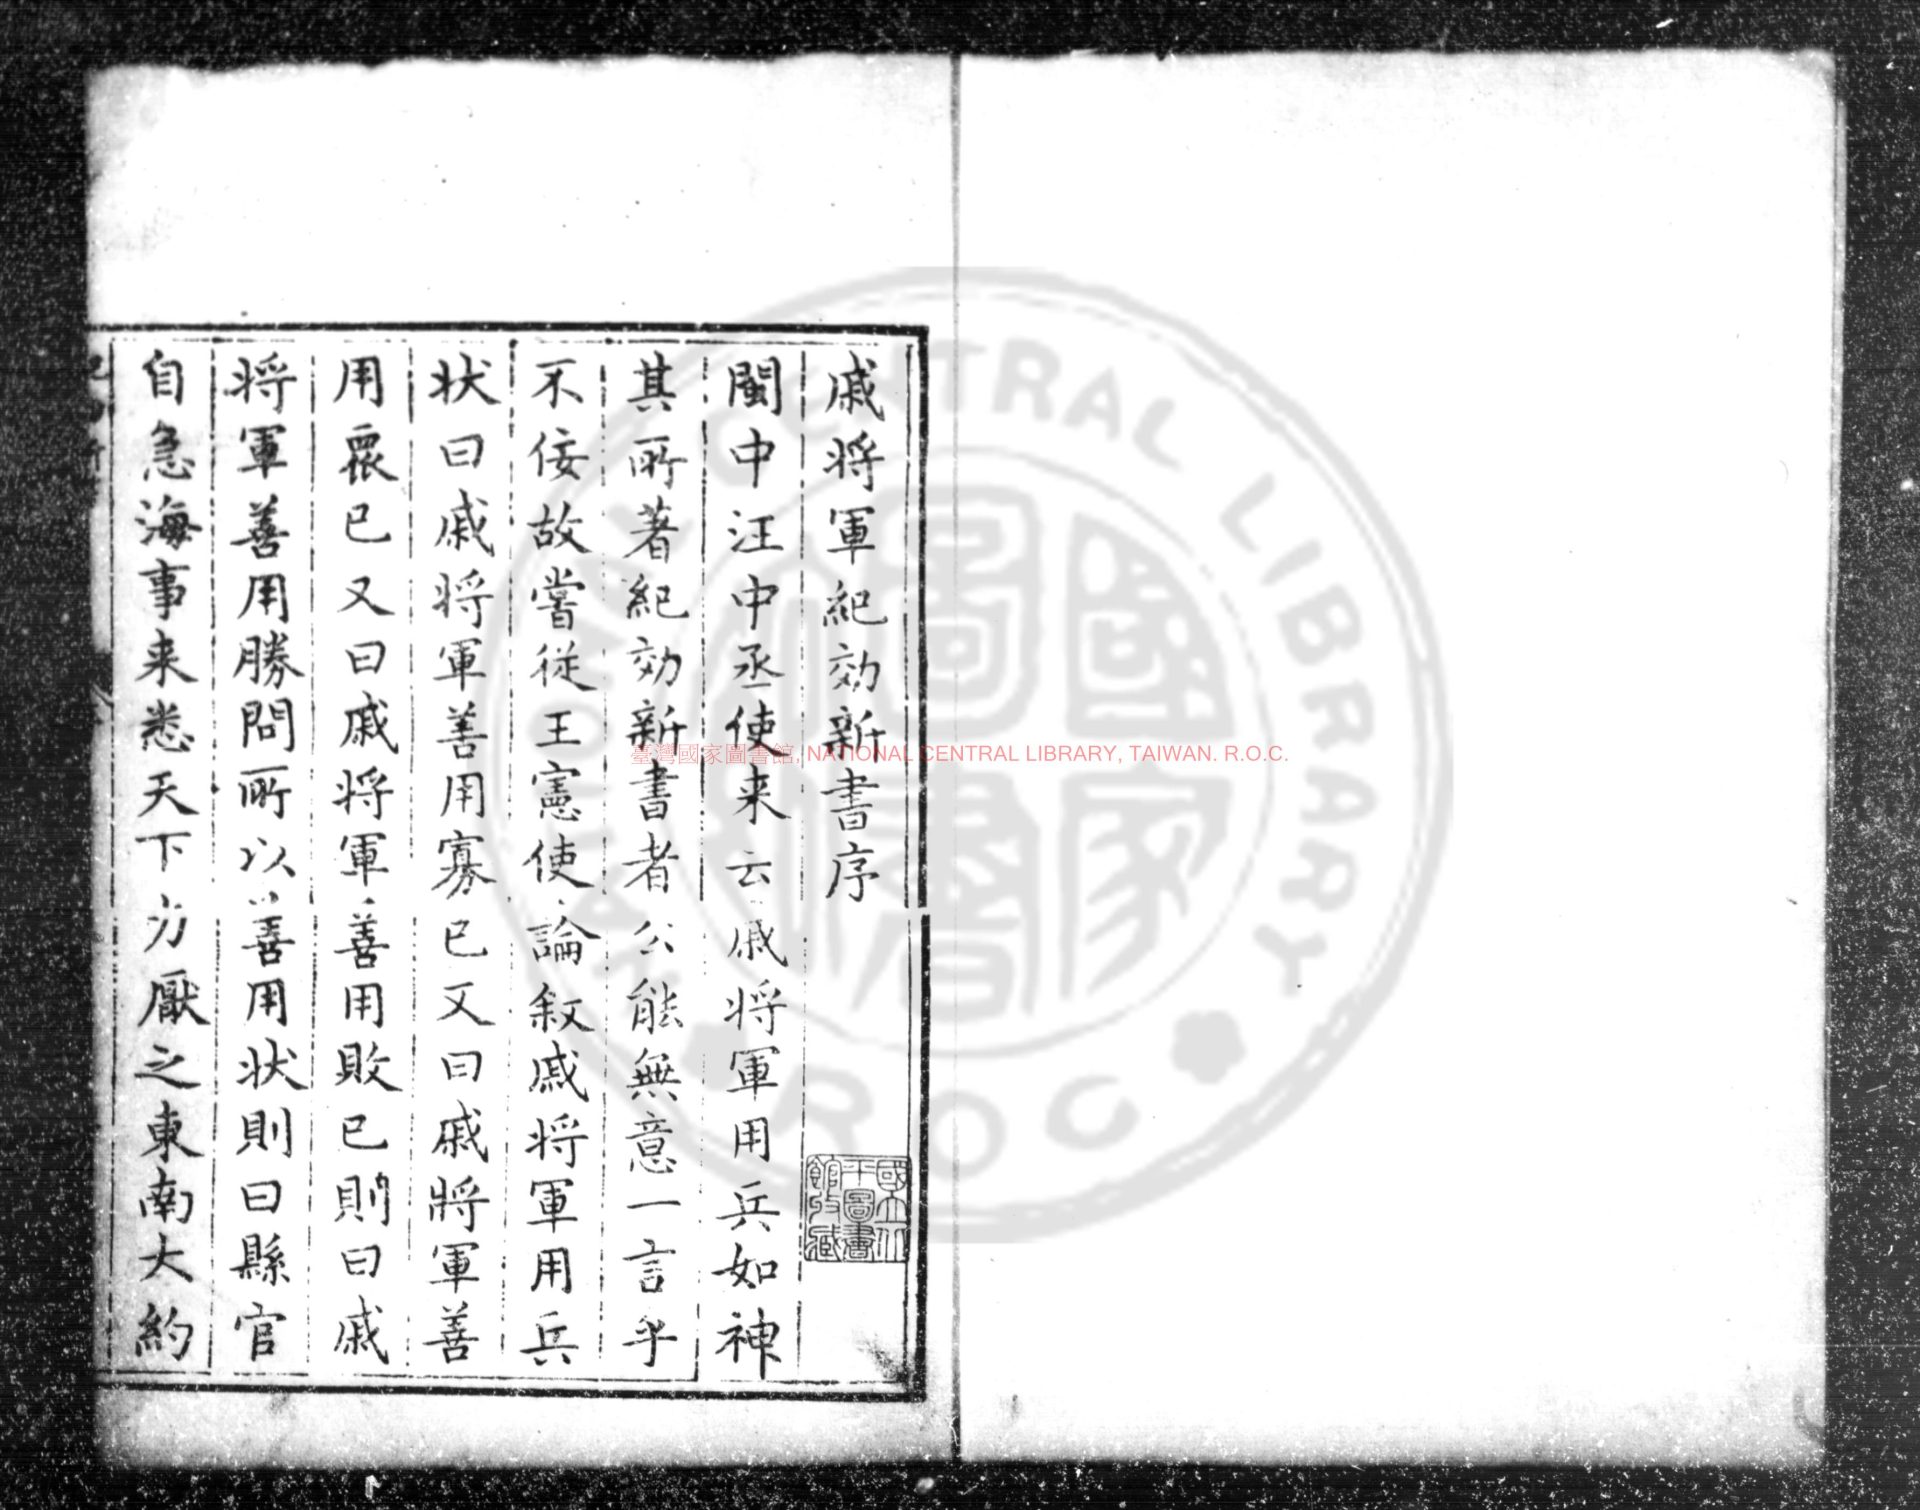 戚將軍紀効新書序
閩中汪中丞使来云戚將軍用兵如神
其所著紀効新書者公能無意一言乎
不佞故嘗從王憲使論敘戚將軍用兵
状曰戚將軍善用寡已又曰戚將軍善
用衆已又曰戚將軍善用敗已則曰戚
將軍善用勝問所以善用状則曰縣官
自急海事来悉天下力厭之東南大約
國立北
平圖書
館收藏
臺灣國家圖書館, NATIONAL CENTRAL LIBRARY, TAIWAN. R.O.C.
NATIONAL CENTRAL LIBRARY
R.O.C.
國家圖書